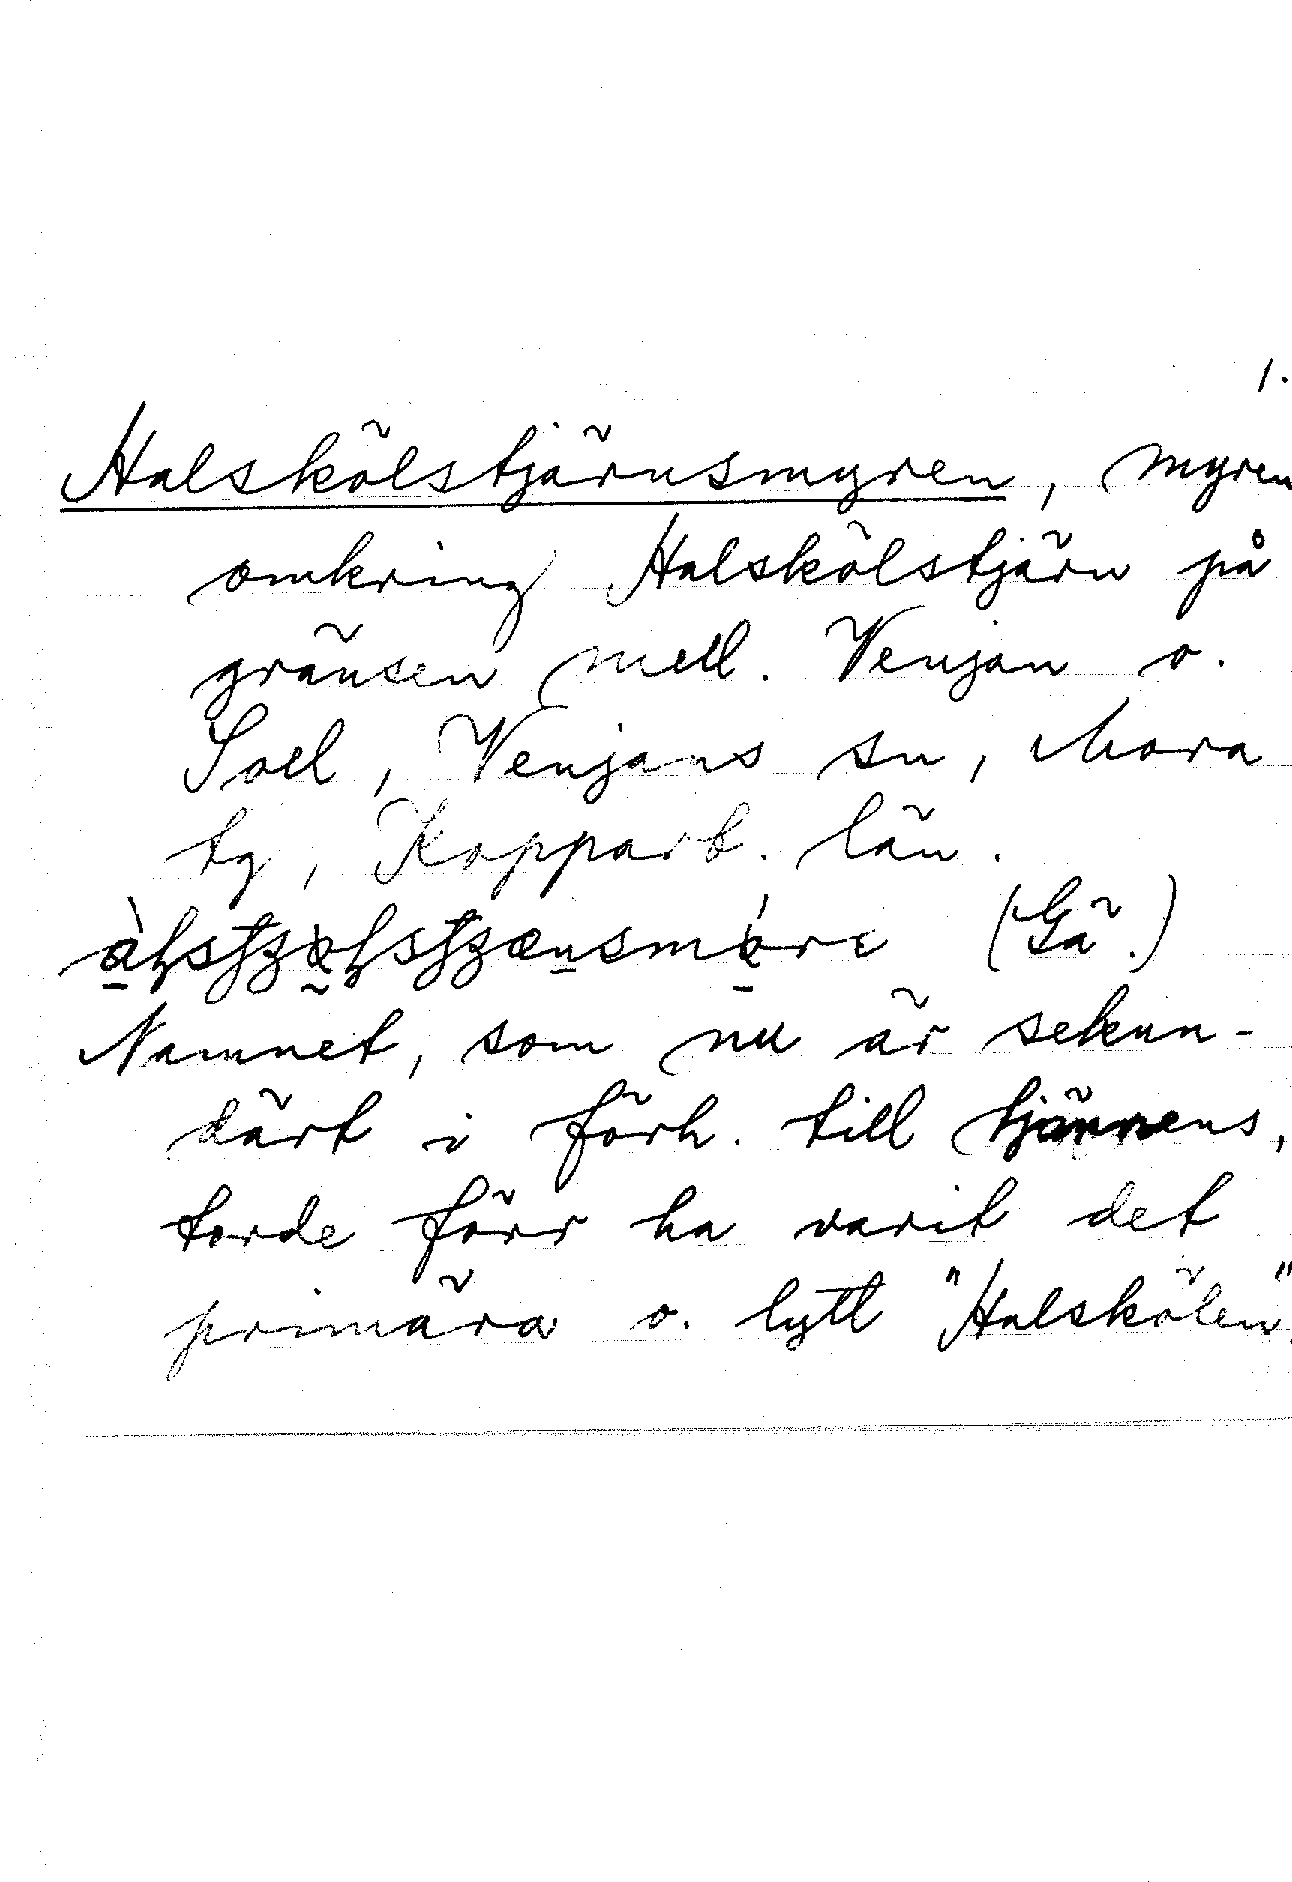 1.
Halskölstjärnsmyren, myren
omkring Halskölstjärn på
gränsen mell. Venjan o.
Soel, Venjans sn, Mora
tg, Kopparb. län.
(Gä.)
Namnet, som nu är sekun-
därt i förh. till tjärnens,
torde förr ha varit det
primära o. lytt "Halskölen".